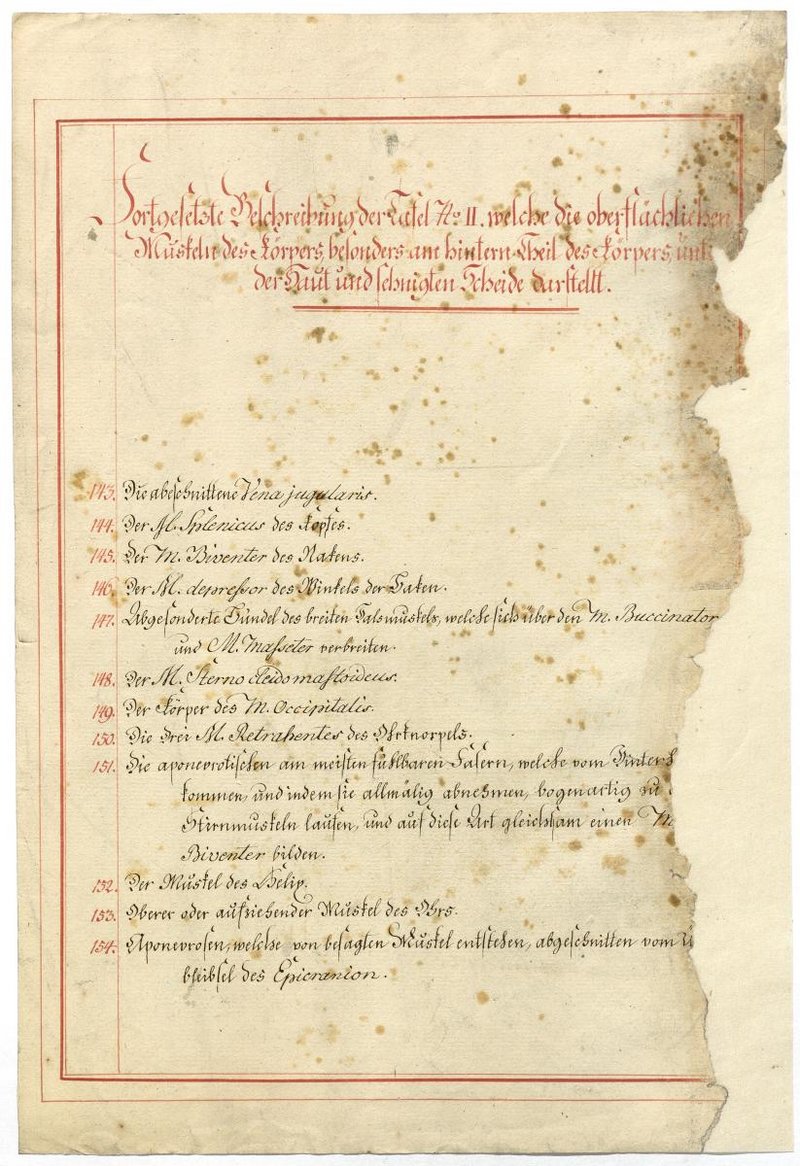 Fortgesetzte Beschreibung der Tafel No II. welche die oberflächlichen
Muskeln des Körpers, besonders am hintern Theil des Körpers, unt
der Haut und sehnigten Scheide darstellt.
143. Die abgeschnittene Vena jugularis.
144. Der M. Splenicus des Kopfes.
145. Der M. Biventer des Nakens.
146. Der M. depressor des Winkels der
147. Abgesonderte Bündel des breiten Halsmuskels, welche sich über den M. Buccinator
und M. Masseter verbreiten.
148. Der M. Sterno cleidomastoideus.
149. Der Körper des M. Occipitalis.
150. Die drei M. Retrahentes des Ohrknorpels.
151. Die aponevrotischen am meisten fühlbaren Fasern, welche vom Hinterk
kommen, und indem sie allmälig abnehmen, bogenartig zu
Stirnmuskeln laufen, und auf diese Art gleichsam einen M
Biventer bilden.
152. Der Muskel des Helix.
153. Oberer oder aufziehender Muskel des Ohrs.
154. Aponevrosen, welche von besagten Muskel entstehen, abgeschnitten vom Ü
bleibsel des Epicranion.